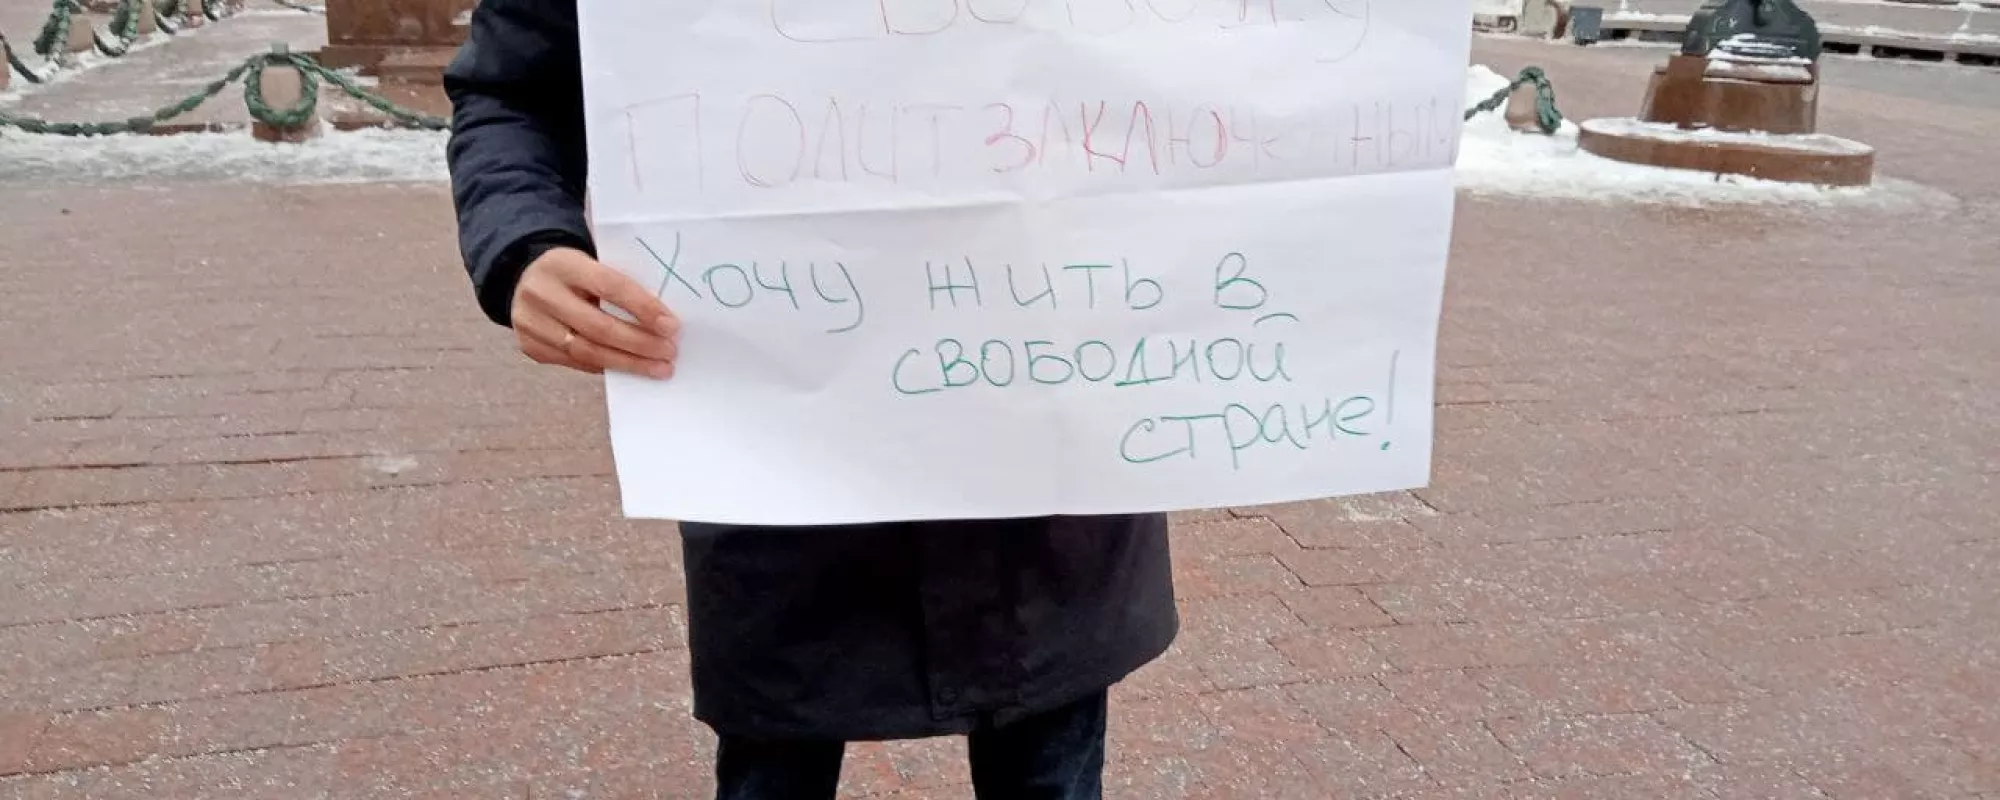 СВОБОДУ
ПОЛИТЗАКЛЮЧЕННЫМ
Хочу жить в
свободной
стране!